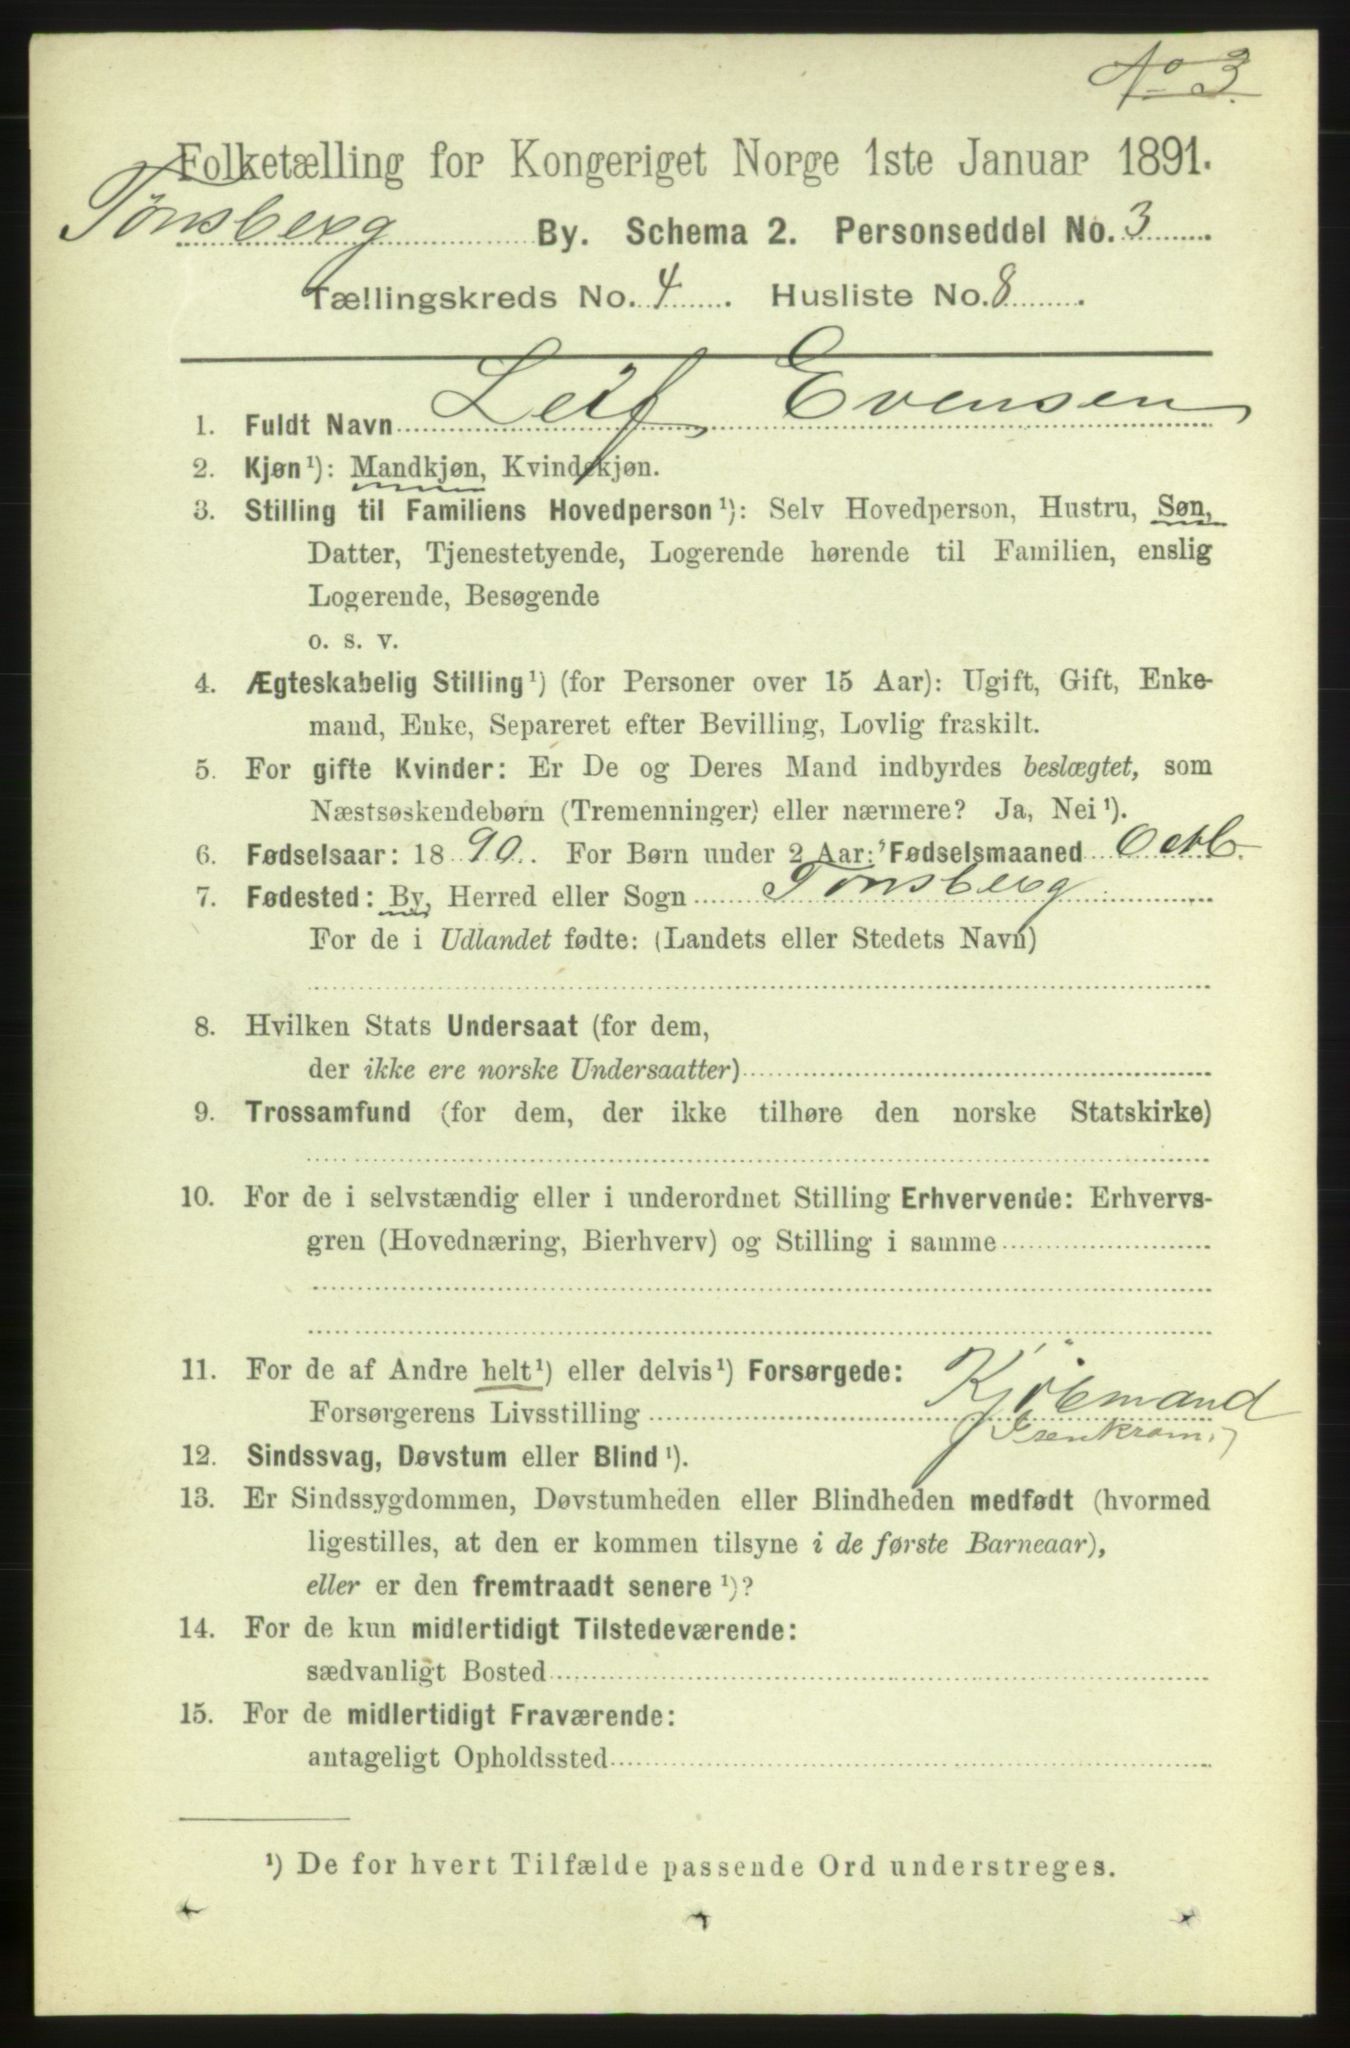 No 3.
Folketælling for Kongeriget Norge 1ste Januar 1891.
Tønsberg By. Schema 2. Personseddel No. 3
Tællingskreds No. 4. Husliste No. 8.
1. Fuldt Navn Leif Evensen
2. Kjøn ¹): Mandkjøn, Kvindekjøn.
3. Stilling til Familiens Hovedperson ¹): Selv Hovedperson, Hustru, Søn,
Datter, Tjenestetyende, Logerende hørende til Familien, enslig
Logerende, Besøgende
o. s. v.
4. Ægteskabelig Stilling ¹) (for Personer over 15 Aar): Ugift, Gift, Enke-
mand, Enke, Separeret efter Bevilling, Lovlig fraskilt.
5. For gifte Kvinder: Er De og Deres Mand indbyrdes beslægtet, som
Næstsøskendebørn (Tremenninger) eller nærmere? Ja, Nei ¹).
6. Fødselsaar: 1890. For Børn under 2 Aar: Fødselsmaaned Octb.
7. Fødested: By, Herred eller Sogn Tønsberg
For de i Udlandet fødte: (Landets eller Stedets Navn)
8. Hvilken Stats Undersaat (for dem,
der ikke ere norske Undersaatter)
9. Trossamfund (for dem, der ikke tilhøre den norske Statskirke)
10. For de i selvstændig eller i underordnet Stilling Erhvervende: Erhvervs-
gren (Hovednæring, Bierhverv) og Stilling i samme
11. For de af Andre helt ¹) eller delvis ¹) Forsørgede:
Forsørgerens Livsstilling Kjöbmand
(Isenkram.)
12. Sindssvag, Døvstum eller Blind ¹).
13. Er Sindssygdommen, Døvstumheden eller Blindheden medfødt (hvormed
ligestilles, at den er kommen tilsyne i de første Barneaar),
eller er den fremtraadt senere ¹)?
14. For de kun midlertidigt Tilstedeværende:
sædvanligt Bosted
15. For de midlertidigt Fraværende:
antageligt Opholdssted
¹) De for hvert Tilfælde passende Ord understreges.